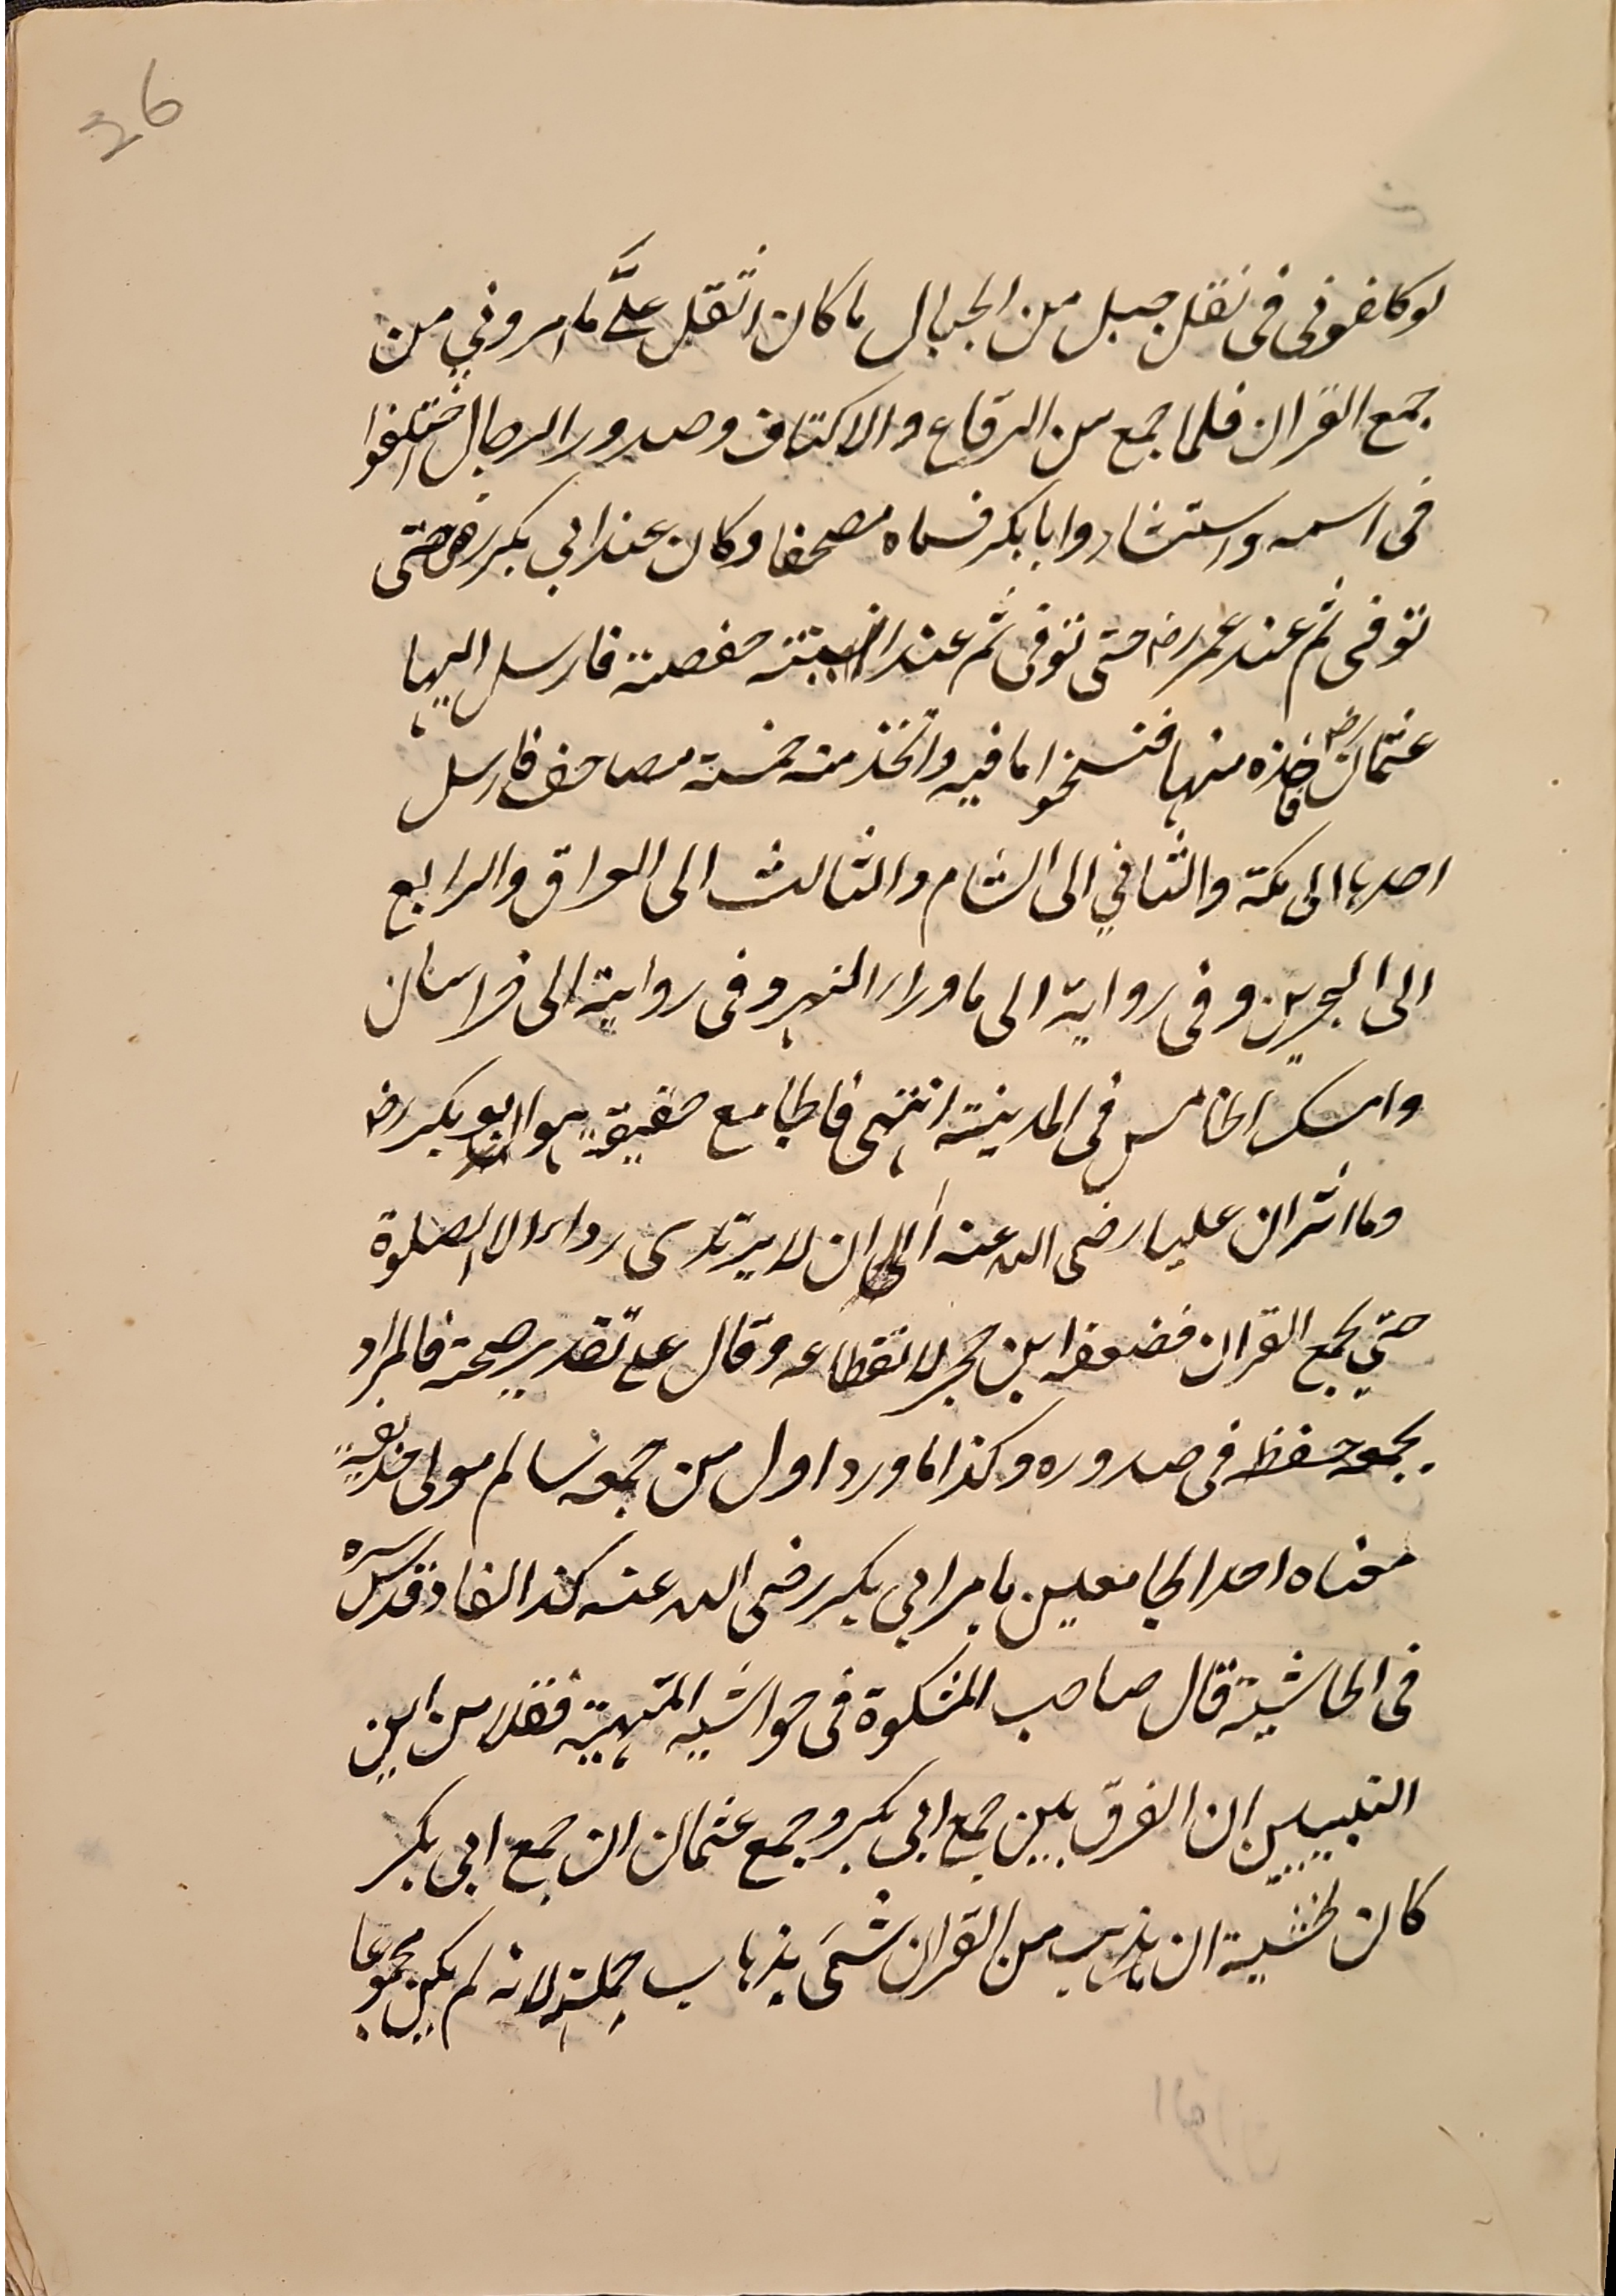 36
لو كلفوني في نقل جبل من الجبال ما كان اثقل علىَّ ما امروني من
جمع القران فلما جمع من الرقاع والاكتاف وصدور الرجال اختلفوا
في اسمه واستشاروا ابا بكر فسماه مصحفا وكان عند ابي بكر رض حتى
توفى ثم عند عمر رض حتى توفى ثم عند بنته حفصة فارسل اليها
عثمان رض فاخذه منها فنسخوا ما فيه واتخذ منه خمسة مصاحف فارسل
احدها الى مكة والثاني الى الشام والثالث الى العراق والرابع
الى البحرين وفى رواية الى ما وراء النهر وفى رواية الى خراسان
وامسك الخامس فى المدينة انتهى فالجامع حقيقة هو ابو بكر رض
وما اثر ان عليا رضى الله عنه الى ان لا يرتدى رداء الا لصلوة
حتي يجمع القران فضعفه ابن حجر لانقطاعه وقال على تقدير صحته فالمراد
بجمعه حفظه فى صدوره وكذا ما ورد اول من جمعه سالم مولى حذيفة
معناه احد الجامعين بامر ابي بكر رضى الله عنه كذا افاد قدس سره
فى الحاشية قال صاحب المشكوة فى حواشيه المنهية نقلا من ابن
التبيين ان الفرق بين جمع ابي بكر وجمع عثمان ان جمع ابي بكر
كان لخشية ان يذهب من القران شئ بذهاب جملته لانه لم يكن مجموعا